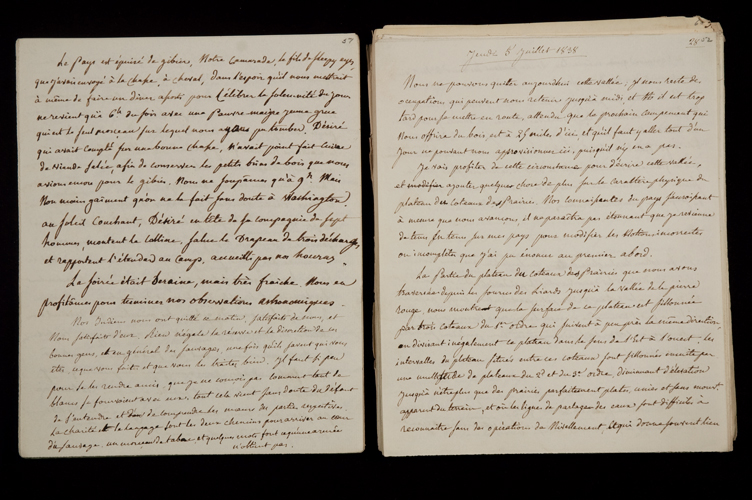 57
Le Pays est épuisé de gibier, Notre Camarade, le fils de
que j'avais envoyé à la chasse, à cheval, dans l'espoir qu'il nous mettrait
à même de faire un dîner pour Célébrer la solemnité du Jour
ne revient qu'à 6h du soir avec une Pauvre maigre jeune grue
qui est le seul morceau sur lequel nous ayons pu tomber. Désiré
qui avait compté sur une bonne chasse, n'avait point fait cuire
de viande salée, afin de conserver les petits brins de bois que nous
avions encore pour le gibier. Nous ne soupâmes qu'à 9h. Mais
Non moins gaiment qu'on ne le fait sans doute à Washington.
au Soleil Couchant, Désiré en tête de sa compagnie de sept
hommes, montent la Colline, salue le Drapeau de trois décharges,
et rapportent l'étendard au Camp, accueillis par nos houras
La Soirée était Sereine, mais très fraiche. Nous en
profitâmes pour terminer nos observations astronomiques.
Nos Indiens nous ont quitté ce matin, satisfaits de nous, et
Nous satisfaits d'eux. Rien n'égale la réserve et la discrétion de ces
bonnes gens, et en général des Sauvages, une fois qu'ils savent qui vous
êtes, ce que vous faites et que vous les traitez bien. Il faut si peu
pour se les rendre amis, que je ne conçois pas comment tant de
blancs se fourvoient avec eux. tout cela vient sans doute du défaut
de s'entendre et de comprendre les
La charité et le langage sont les deux chemins pour arriver au cœur
du Sauvage. un morceau de tabac et quelques mots font ce qu'une armée
n'obtient pas.
58
52
Jeudi 5 Juillet 1838
Nous ne pouvons quitter aujourd'hui cette vallée; il nous reste des
occupations qui peuvent nous retenir jusqu'à midi, et il est trop
tard pour se mettre en route, attendu que le prochain campement qui
nous offrira du bois est à 25 mile d'ici et qu'il faut y aller tout d'un
Jour ne pouvant nous approvisionner ici, puisqu'il n'y en a pas.
Je vais profiter de cette circonstance pour décrire cette vallée,
et modifier ajouter quelque chose de plus sur le caractère physique du
plateau du Coteau des Prairies. Nos connaissances du pays s'accroissant
à mesure que nous avançons il ne paraitra pas étonnant que je revienne
de tems en tems sur mes pas pour modifier les Notions incorrectes
ou incomplètes que j'ai pu énoncer au premier abord.
La Partie du plateau du coteau des Prairies que nous avons
traversée depuis les sources des Liards jusqu'à la vallée de la pierre
rouge, nous montrent que la surface de ce plateau est sillonnée
par trois coteaux du 1er ordre qui suivent à peu près la même direction,
en divisant inégalement ce plateau dans le sens de l'Est à l'ouest. les
intervalles du plateau situés entre ces coteaux sont sillonnés ensuite par
une multitude de plateaux du 2e et du 3e ordre, diminuant d'élévation
jusqu'à n'être plus que des prairies parfaitement plates, unies et sans mouvt.
apparent du terrain, et où les lignes de partage des eaux sont difficiles à
reconnaître sans des opérations de Nivellement, et qui donnent souvent lieu